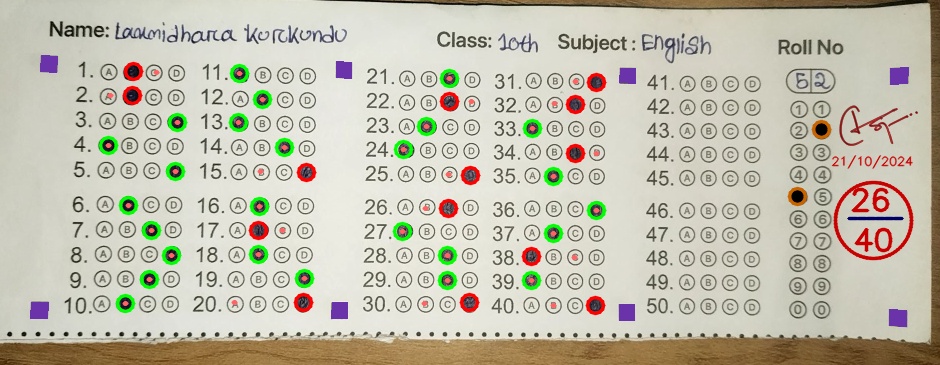 Name: Laxmidhara Kurkundu
Class: 10th Subject: English
Roll No
52
1. A B C D
2. A B C D
3. A B C D
4. A B C D
5. A B C D
6. A B C D
7. A B C D
8. A B C D
9. A B C D
10. A B C D
11. A B C D
12. A B C D
13. A B C D
14. A B C D
15. A B C D
16. A B C D
17. A B C D
18. A B C D
19. A B C D
20. A B C D
21. A B C D
22. A B C D
23. A B C D
24. A B C D
25. A B C D
26. A B C D
27. A B C D
28. A B C D
29. A B C D
30. A B C D
31. A B C D
32. A B C D
33. A B C D
34. A B C D
35. A B C D
36. A B C D
37. A B C D
38. A B C D
39. A B C D
40. A B C D
41. A B C D
42. A B C D
43. A B C D
44. A B C D
45. A B C D
46. A B C D
47. A B C D
48. A B C D
49. A B C D
50. A B C D
1 1
2
3 3
4 4
5
6 6
7 7
8 8
9 9
0 0
21/10/2024
26
40